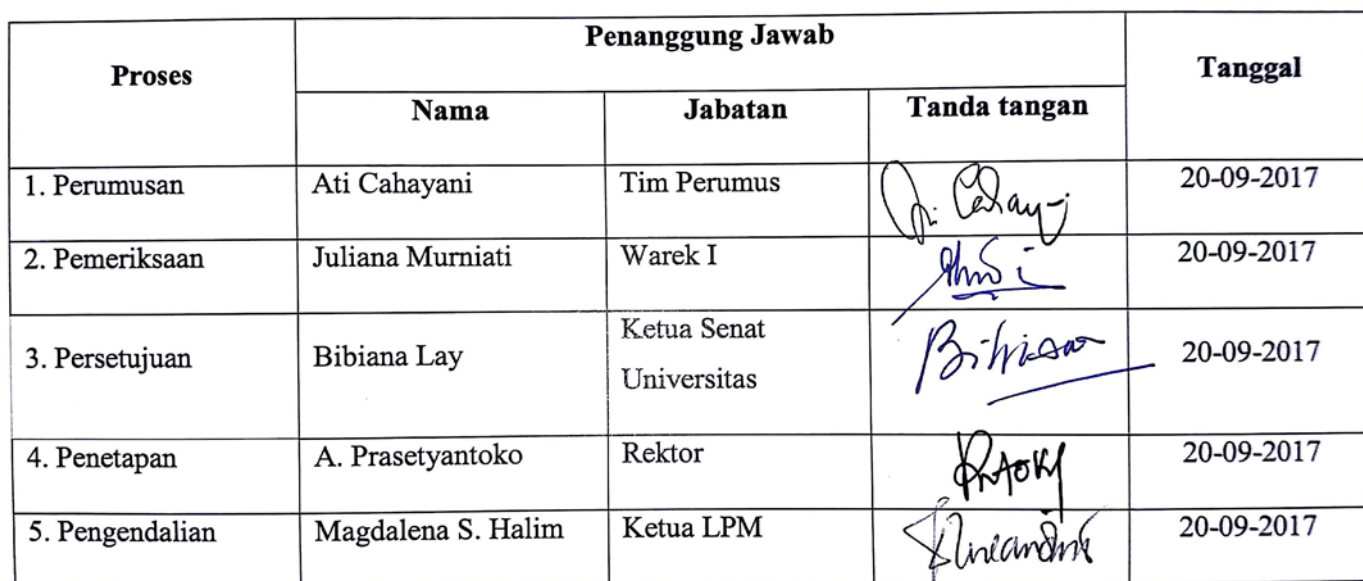 Proses
Penanggung Jawab
Tanggal
Nama
Jabatan
Tanda tangan
1. Perumusan
Ati Cahayani
Tim Perumus
20-09-2017
2. Pemeriksaan
Juliana Murniati
Warek I
20-09-2017
3. Persetujuan
Bibiana Lay
Ketua Senat
Universitas
20-09-2017
4. Penetapan
A. Prasetyantoko
Rektor
20-09-2017
5. Pengendalian
Magdalena S. Halim
Ketua LPM
20-09-2017